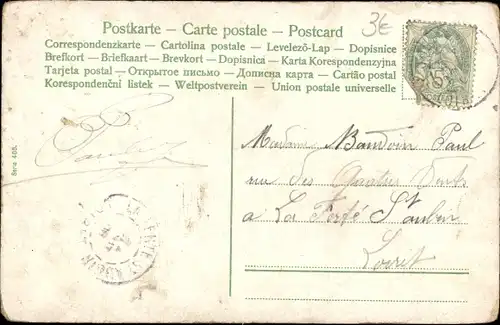 Postkarte — Carte postale — Postcard
3€
Correspondenzkarte — Cartolina postale — Levelező-Lap — Dopisnice
Brefkort — Briefkaart — Brevkort — Dopisnica — Karta Korespondenzyjna
Tarjeta postal — Открытое письмо — Дописна карта — Cartão postal
Korespondenční listek — Weltpostverein — Union postale universelle
Serie 405.
Madame Baudoin Paul
rue des Quatres Vents
a La Ferté St Aubin
Loiret
LA FERTE ST AUBIN